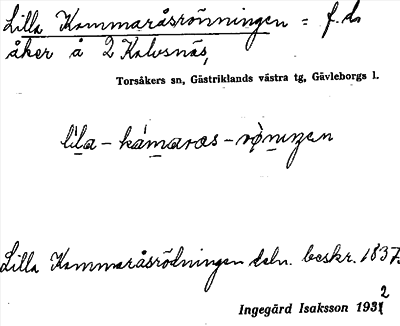 Lilla Kammaråsrönningen = f.d.
åker å 2 Kalvsnäs,
Torsåkers sn, Gästriklands västra tg, Gävleborgs l.
li̱la – ká̱maras – rö̀ni̱ŋen
Lilla Kammaråsrödningen deln. beskr. 1837.
Ingegärd Isaksson 1932